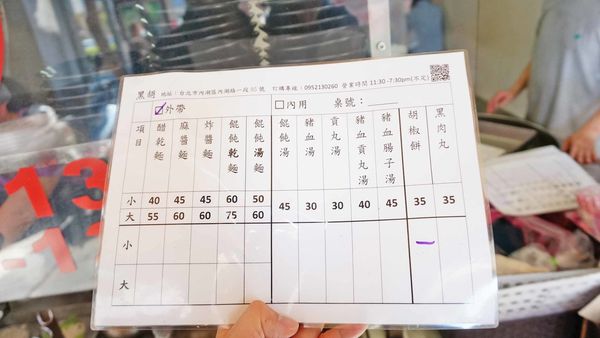 黑餅 地址:台北市內湖區內湖路一段85號 訂購專線:0952130260 營業時間 11:30 -7:30pm(不定)
外帶 內用 桌號:
項目 醋乾麵 麻醬麵 炸醬麵 餛飩乾麵 餛飩湯麵 餛飩湯 豬血湯 貢丸湯 豬血貢丸湯 豬血腸子湯 胡椒餅 黑肉丸
小 40 45 45 60 50 45 30 30 40 45 35 35
大 55 60 60 75 60
小 一
大
13
-1